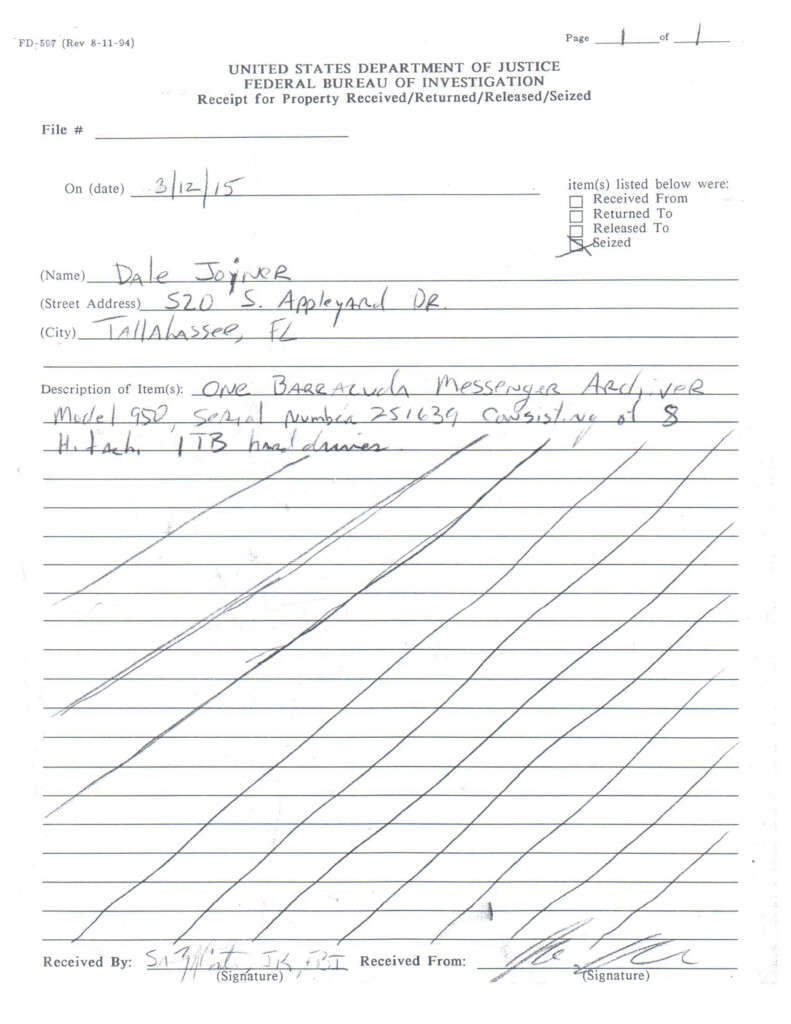 FD-597 (Rev 8-11-94)
Page 1 of 1
UNITED STATES DEPARTMENT OF JUSTICE
FEDERAL BUREAU OF INVESTIGATION
Receipt for Property Received/Returned/Released/Seized
File #
On (date) 3/12/15
item(s) listed below were:
Received From
Returned To
Released To
Seized
(Name) Dale Joyner
(Street Address) 520 S. Appleyard DR.
(City) Tallahassee, FL
Description of Item(s): ONE Barracuda Messenger Archiver
Model 950, Serial Number 251639 Consisting of 8
Hitachi 1TB hard drives
Received By: SA JR, FBI Received From:
(Signature) (Signature)